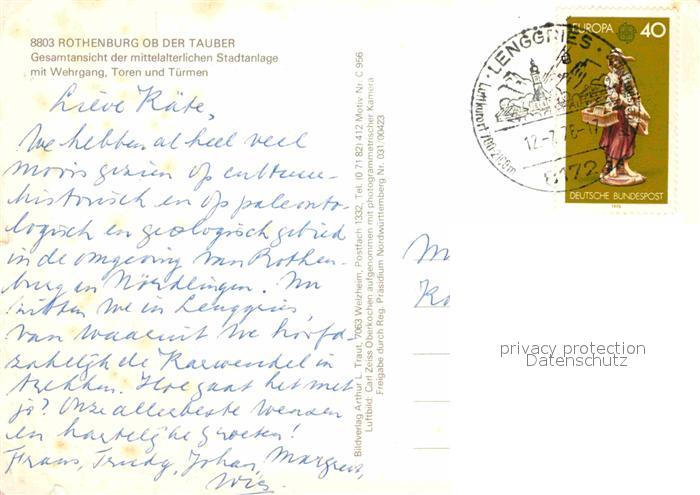 8803 ROTHENBURG OB DER TAUBER
Gesamtansicht der mittelalterlichen Stadtanlage
mit Wehrgang, Toren und Türmen
Lieve Käte,
We hebben al heel veel
moois gezien op cultuur-
historisch en op paleonto-
logisch en geologisch gebied
in de omgeving van Rothen-
burg en Nördlingen. Nu
zitten we in Lenggries,
van waaruit we hoofd-
zakelijk de Karwendel in
trekken. Hoe gaat het met
je? Onze allerbeste wensen
en hartelijke groeten!
Frans, Trudy, Johan, Margreet,
Wies
Bildverlag Arthur L. Traut, 7063 Welzheim, Postfach 1332, Tel. (0 71 82) 412 Motiv Nr. C 956
Luftbild: Carl Zeiss Oberkochen aufgenommen mit photogrammetrischer Kamera
Freigabe durch Reg. Präsidium Nordwürttemberg Nr. 031/00423
LENGGRIES
Luftkurort 700-2100m
8172
EUROPA 40
DEUTSCHE BUNDESPOST
1976
privacy protection
Datenschutz